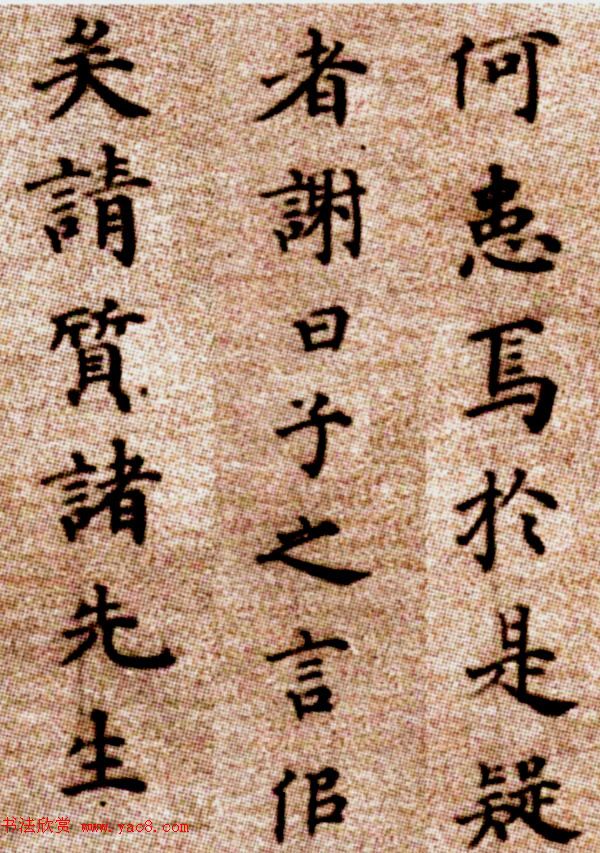 何患焉於是疑
者謝曰子之言侣
矣請質諸先生
书法欣赏 www.yac8.com